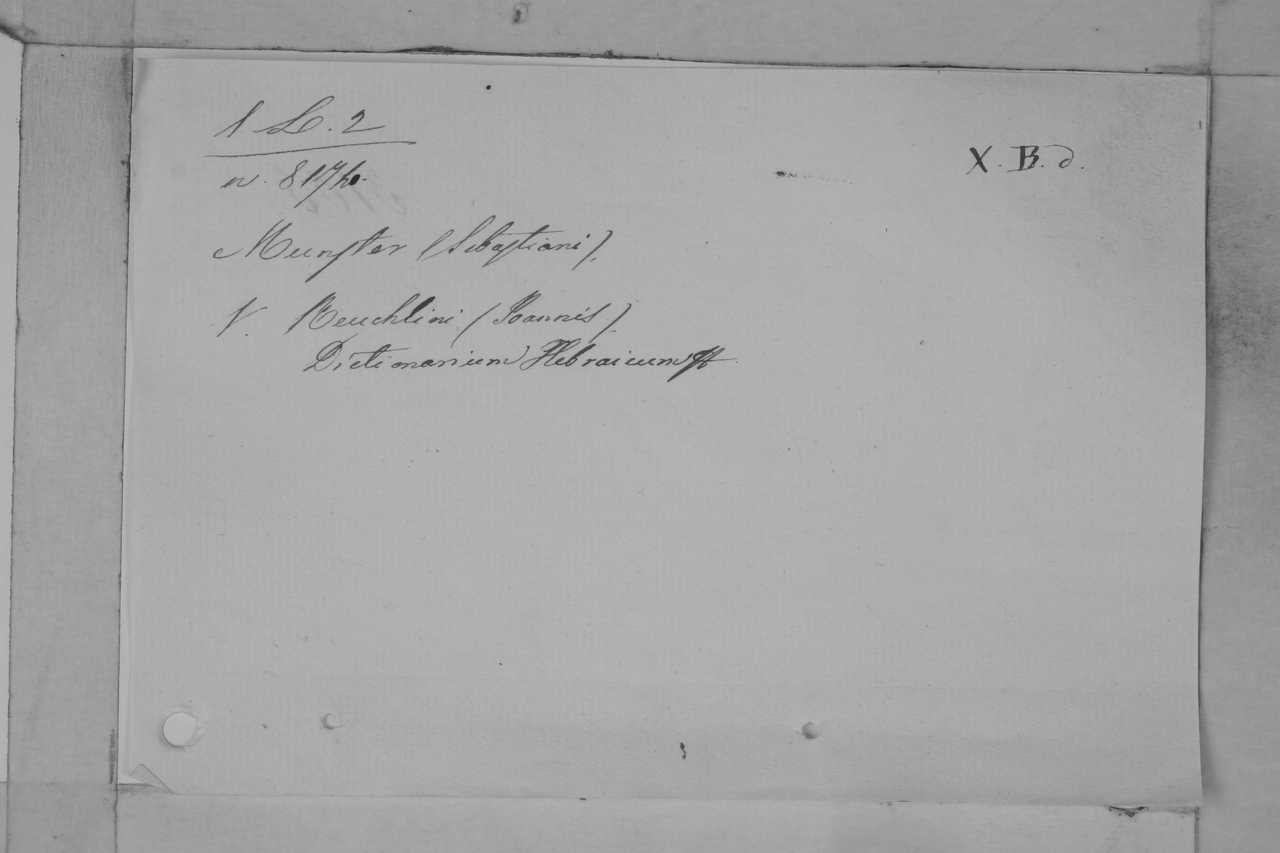 1 L. 2
X. B. d.
n. 8170.
Munster (Sebastiani).
V. Reuchlini (Joannis).
Dictionarium Hebraicum